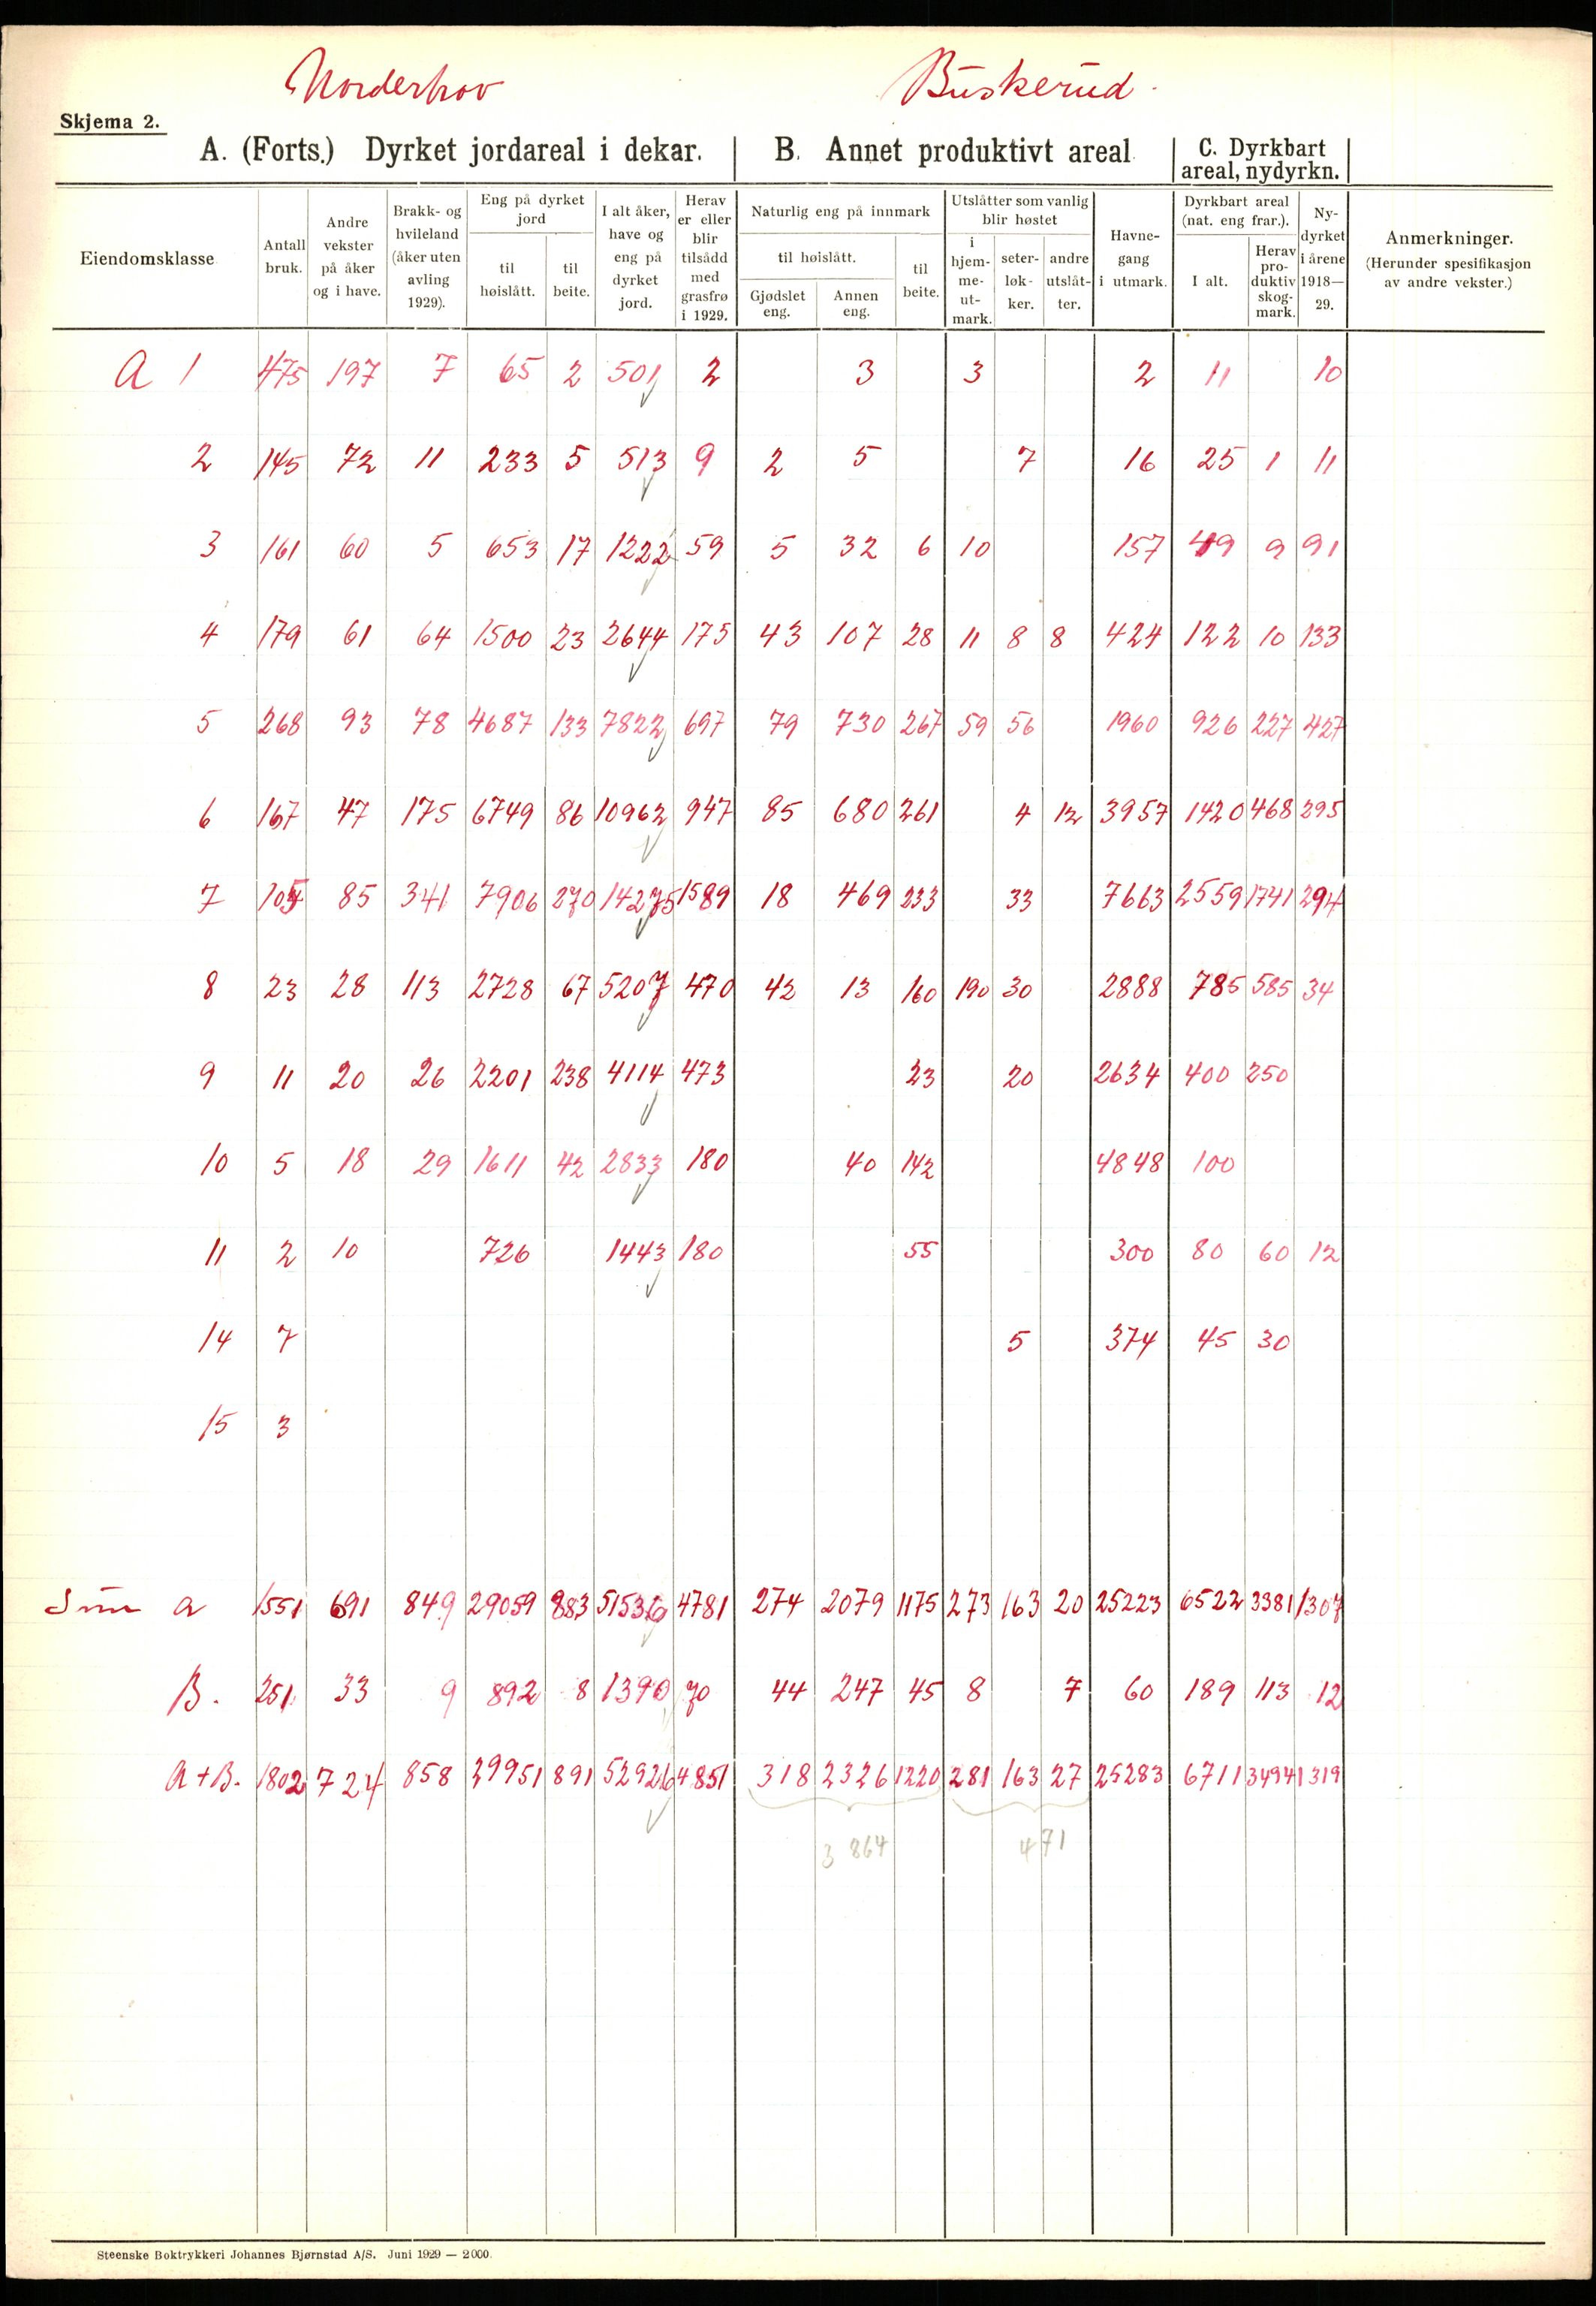 Norderhov Buskerud.
Skjema 2.
A. (Forts.) Dyrket jordareal i dekar. B. Annet produktivt areal C. Dyrkbart areal, nydyrkn.
Eiendomsklasse
Antall bruk.
Andre vekster på åker og i have.
Brakk- og hvileland (åker uten avling 1929).
Eng på dyrket jord
til høislått.
til beite.
I alt åker, have og eng på dyrket jord.
Herav er eller blir tilsådd med grasfrø i 1929.
Naturlig eng på innmark
til høislått.
Gjødslet eng.
Annen eng.
til beite.
Utslåtter som vanlig blir høstet
i hjem-me-ut-mark.
seter-løk-ker.
andre utslåt-ter.
Havne-gang i utmark.
Dyrkbart areal (nat. eng frar.).
I alt.
Herav pro-duktiv skog-mark.
Ny-dyrket i årene 1918—29.
Anmerkninger.
(Herunder spesifikasjon av andre vekster.)
A 1 475 197 7 65 2 501 2 3 3 2 11 10
2 145 72 11 233 5 513 9 2 5 7 16 25 1 11
3 161 60 5 653 17 1222 59 5 32 6 10 157 49 9 91
4 179 61 64 1500 23 2644 175 43 107 28 11 8 8 424 122 10 133
5 268 93 78 4687 133 7822 697 79 730 267 59 56 1960 926 227 427
6 167 47 175 6749 86 10962 947 85 680 261 4 12 3957 1420 468 295
7 105 85 341 7906 270 14275 1589 18 469 233 33 7663 2559 1741 294
8 23 28 113 2728 67 5207 470 42 13 160 190 30 2888 785 585 34
9 11 20 26 2201 238 4114 473 23 20 2634 400 250
10 5 18 29 1611 42 2833 180 40 142 4848 100
11 2 10 726 1443 180 55 300 80 60 12
14 7 5 374 45 30
15 3
Sum a 1551 691 849 29059 883 51536 4781 274 2079 1175 273 163 20 25223 6522 3381 1307
B. 251 33 9 892 8 1390 70 44 247 45 8 7 60 189 113 12
A+B. 1802 724 858 29951 891 52926 4851 318 2326 1220 281 163 27 25283 6711 3494 1319
3 864 471
Steenske Boktrykkeri Johannes Bjørnstad A/S. Juni 1929 — 2000.